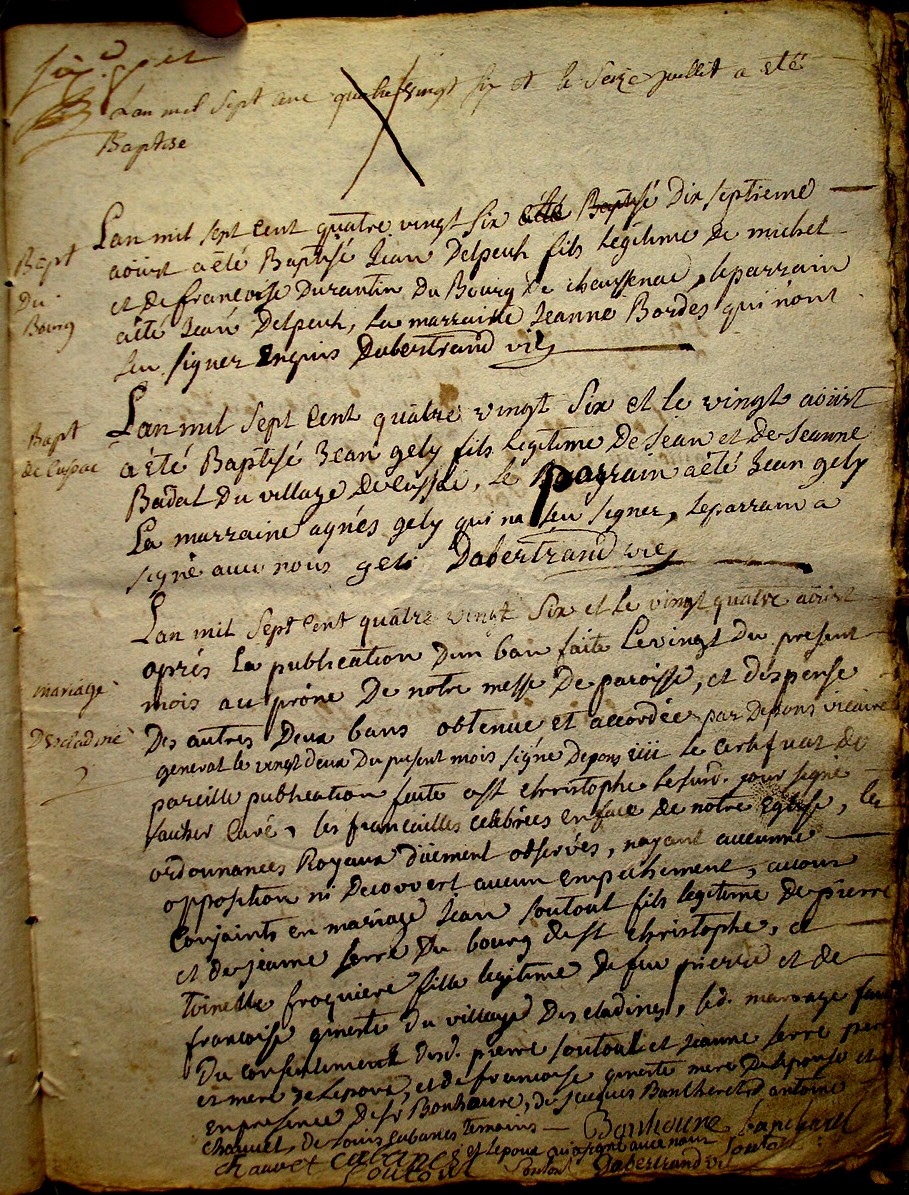 Lan mil sept ane quatre vingt six et le seize juillet a eté
Baptise
Bapt
Du
Bourg
Lan mil sept cent quatre vingt six été Baptisé Dix septieme
aöust a été Baptisé Jean Delpeuh fils legitime de michel
et de francoise Durantin Du Bourg de chaussenac, le parrain
a été Jean Delpeuh, La marraine Jeanne Bordes qui n'ont
seu signer enquis Dabertrand vic
Bapt
de Cussac
Lan mil sept Cent quatre vingt six et le vingt aöust
a été Baptisé Jean gely fils legitime de Jean et de Jeanne
Badal Du village de Cussac, Le parrain a été Jean gely
La marraine agnés gely qui na seu signer, le parrain a
signé avec nous geli Dabertrand vic
mariage
Descladine
Lan mil sept Cent quatre vingt six et le vingt quatre aöust
aprés La publication d'un ban faite Le vingt du present
mois au prône De notre messe De paroisse, et dispense
Des autres Deux bans obtenue et accordée par Depons vicaire
general le vingt deux Du present mois signé Depons Le certificat de
pareille publication faite a st Christophe Le jour signé
curé, les fiancailles celebrées en face de notre Eglise, les
ordonnances Royaux düement observés, nayant aucunne
opposition ni Decouvert aucun empechement,
Conjoints en mariage Jean soutoul fils legitime de pierre
et de jeanne serre Du bourg de st Christophe, et
toinette froquiere fille legitime de feu pierre et de
francoise ginerte Du village Descladines, led. mariage fait
Du consentement desd. pierre soutoul et jeanne serre pere
et mere de Lepoux, et de francoise ginerte mere de lepouse et
en presence de sr Bonhoure, de jacques Bancharel antoine
chauvet, de Louis Cabanes temoins Bonhoure bancharel
chauvet Cabanes et lepoux qui a signé avec nous
soutoul Dabertrand vic